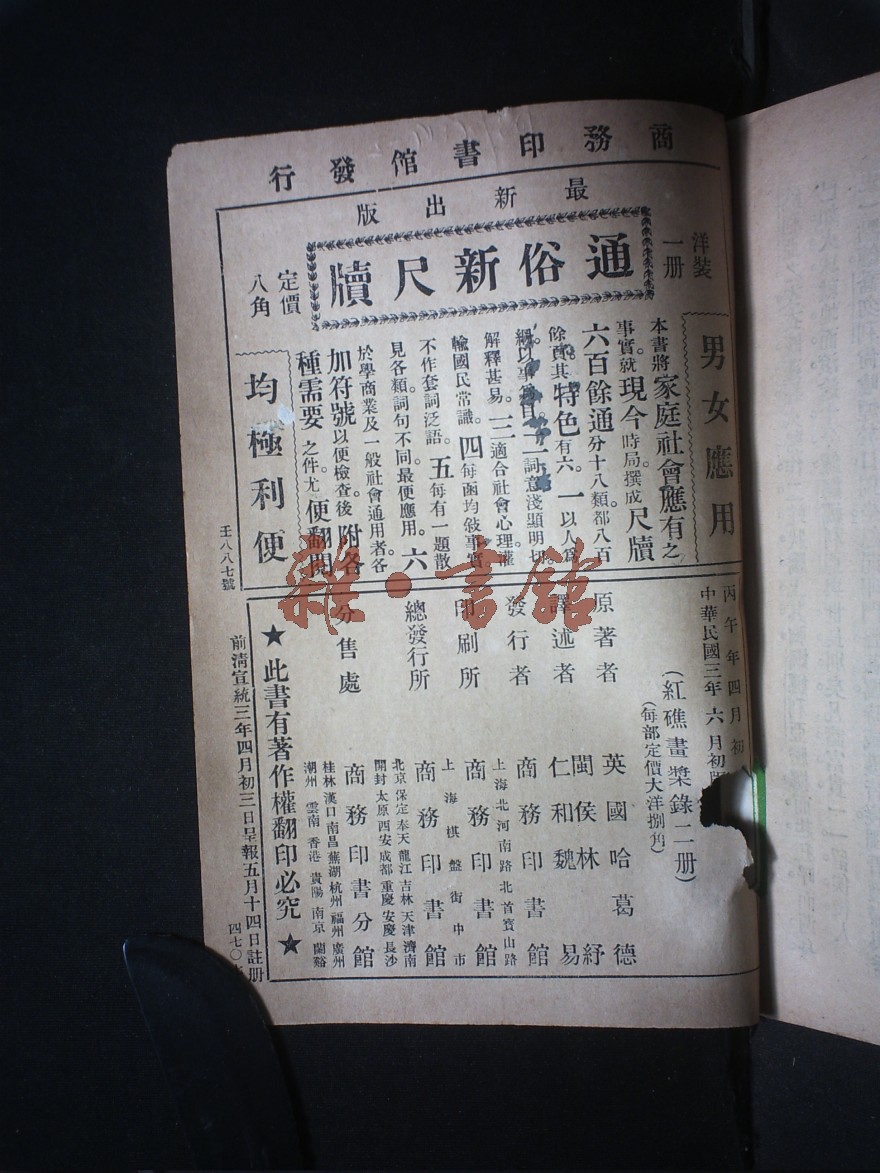 商務印書館發行
最新出版
洋裝一册
通俗新尺牘
定價八角
男女應用
本書將家庭社會應有之
事實。就現今時局撰成尺牘
六百餘通分十八類都八百
餘頁其特色有六。一以人爲
綱。以事爲目。二詞意淺顯明切。
解釋甚易。三適合社會心理。灌
輸國民常識。四每函均敍事實。
不作套詞泛語。五每有一題散
見各類詞句不同。最便應用。六
於學商業及一般社會通用者各
加符號以便檢查。後附各
種需要之件。尤便翻閱
均極利便
壬八八七號
丙午年四月初
中華民國三年六月初版
(紅礁畫槳錄二册)
(每部定價大洋捌角)
原著者 英國哈葛德
譯述者 閩侯林紓
仁和魏易
發行者 商務印書館
上海北河南路北首寶山路
印刷所 商務印書館
上海棋盤街中市
總發行所 商務印書館
北京保定奉天龍江吉林天津濟南
開封太原西安成都重慶安慶長沙
分售處 商務印書分館
桂林漢口南昌蕪湖杭州福州廣州
潮州雲南香港貴陽南京蘭谿
★此書有著作權翻印必究★
前清宣統三年四月初三日呈報五月十四日註册
四七〇
雜·書館